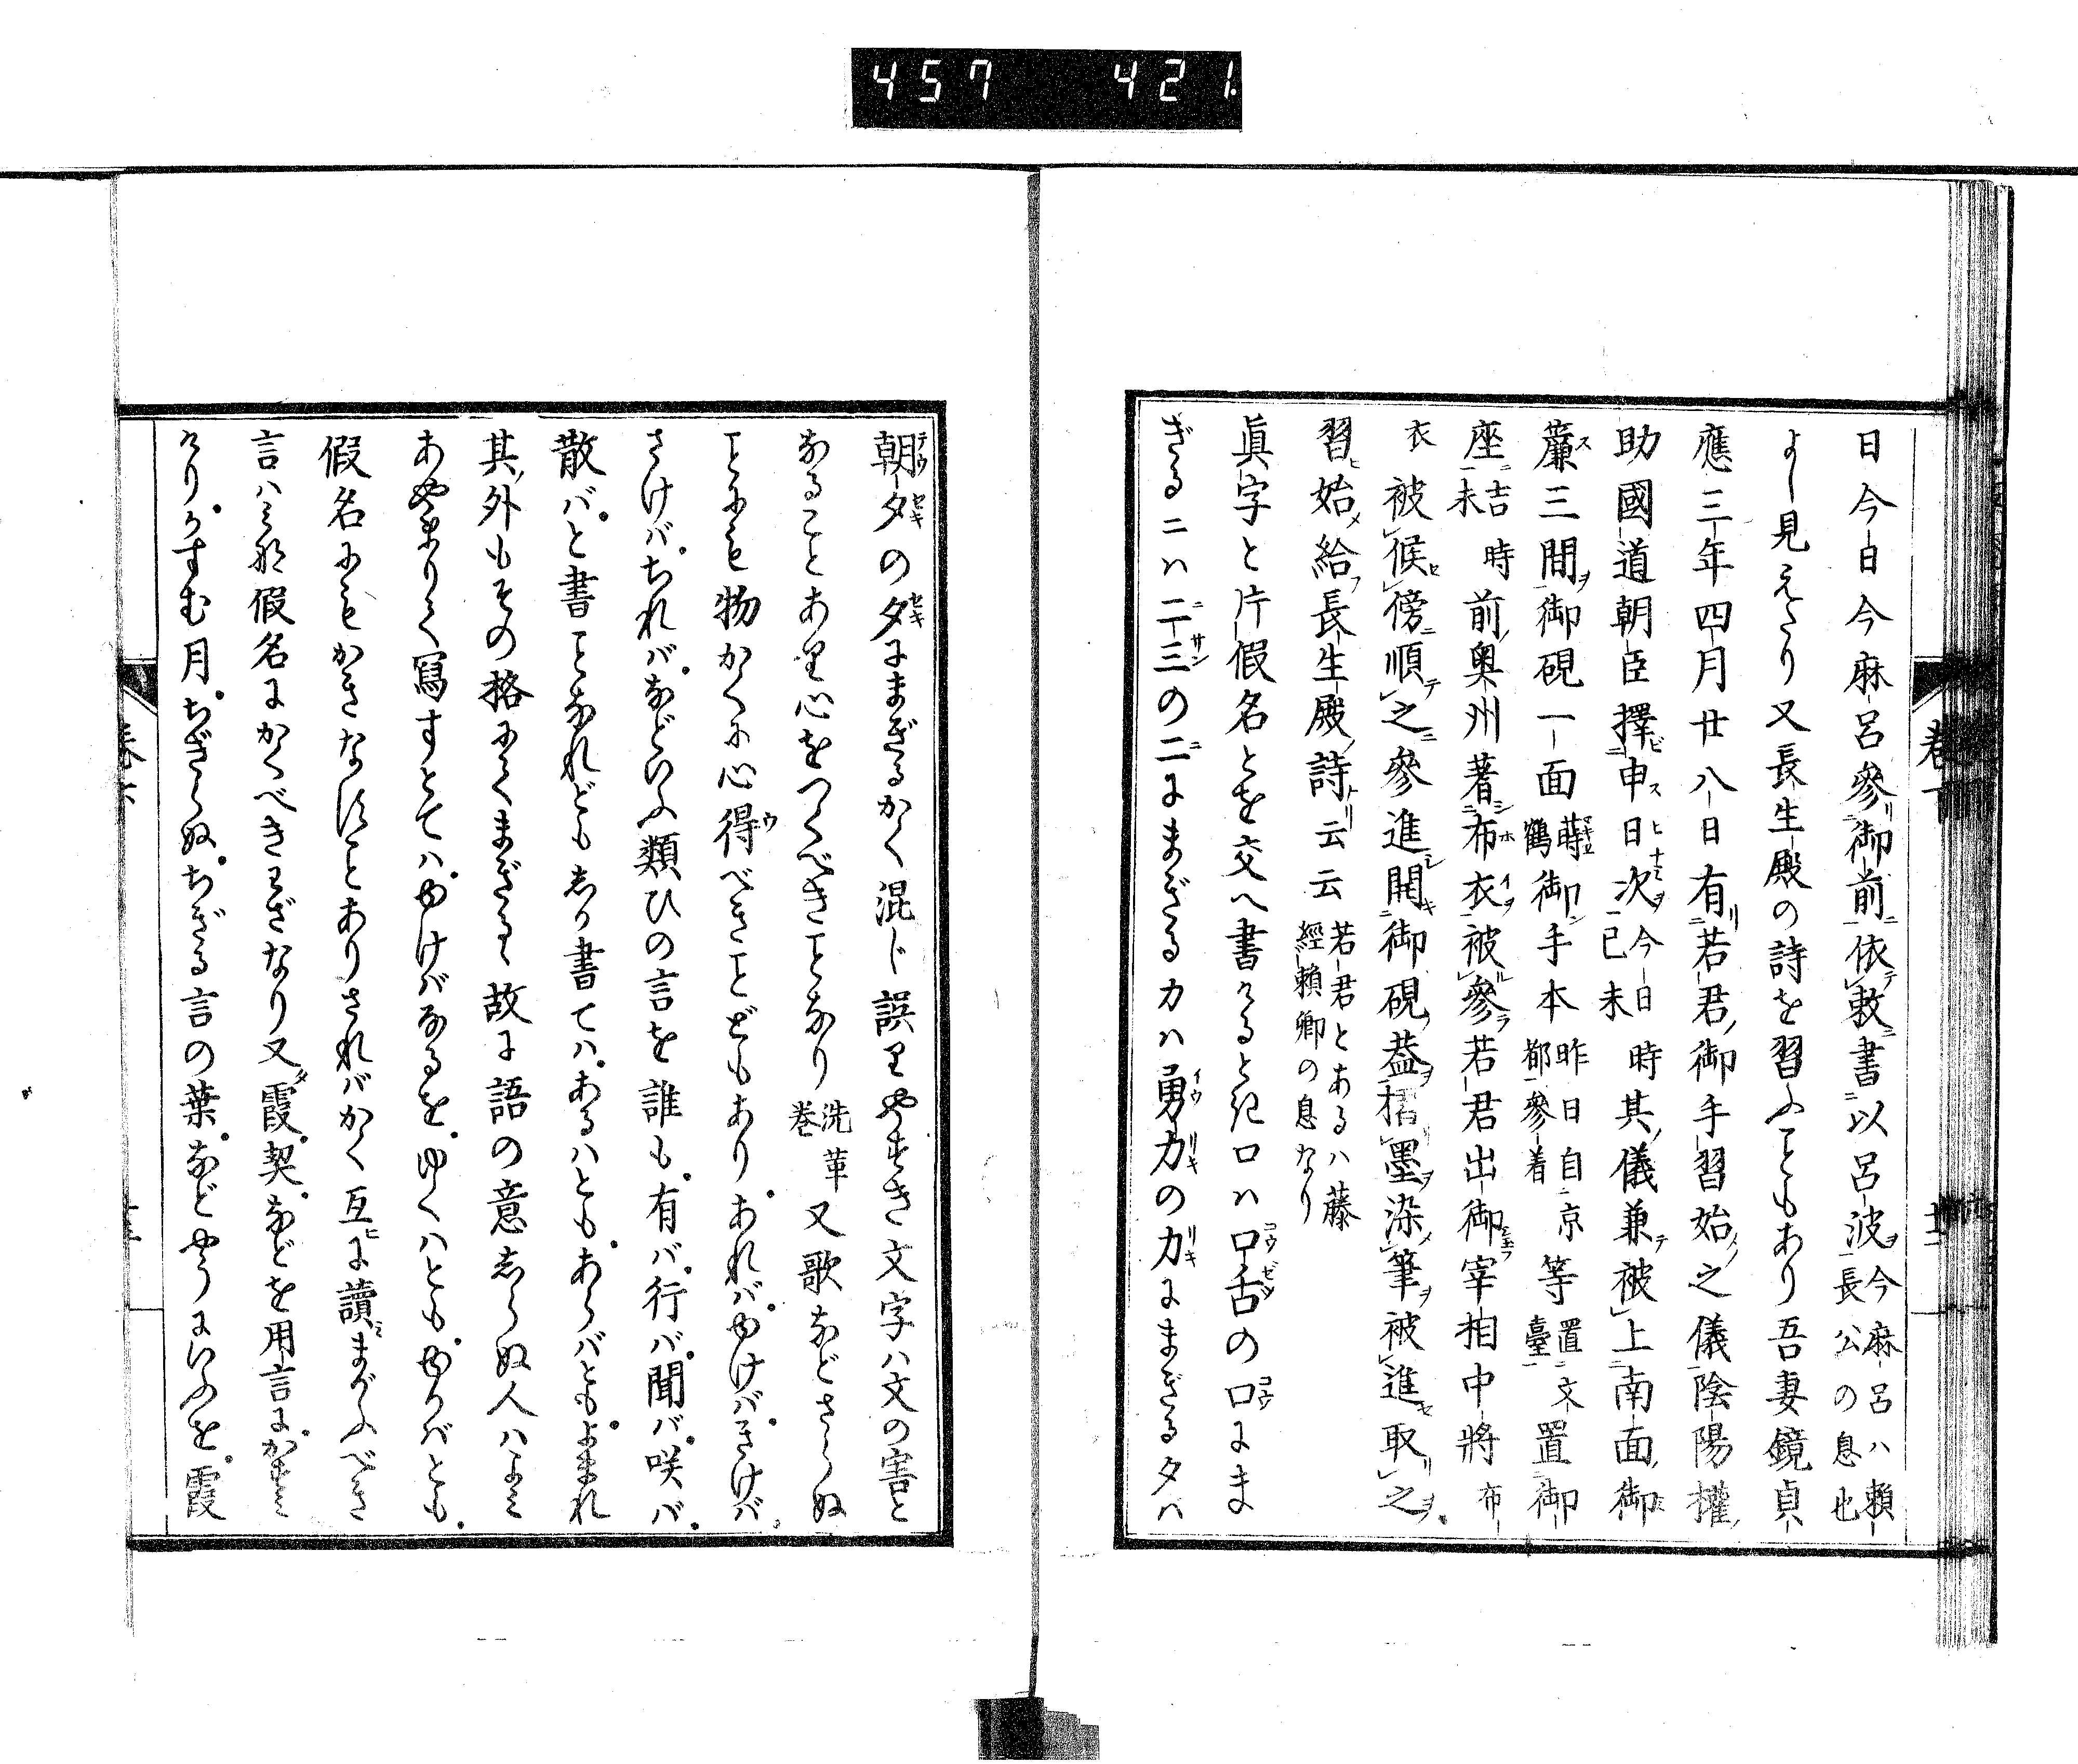 457 421.
日今日今麻呂參御前依敕書以呂波今麻呂ハ賴長公の息也
よし見えたり又長生殿の詩を習ふこともあり吾妻鏡貞
應三年四月廿八日有若君御手習始之儀陰陽權
助國道朝臣擇申日次今日己未時其儀兼被上南面御
簾三間御硯一面蒔鶴御手本昨日自京都參着等置文臺置御
座吉未時前奥州著布衣被參若君出御宰相中將布
衣被候傍順之參進開御硯蓋摺墨染筆被進取之
習始給長生殿詩云云若君とあるハ藤經賴卿の息なり
眞字と片假名とを交へ書けると記ロハ口舌の口にま
ぎるニハ二三の二にまぎるカハ勇力の力にまぎるタハ
朝夕の夕にまぎるかく混じ誤りやすき文字ハ文の害と
なることあり心をつくべきことなり洗革巻又歌などさらぬ
ことにも物かくに心得べきことどもありあれバゆけバきけバ
さけバちれバなどいふ類ひの言を誰も有バ行バ聞バ咲バ
散バと書ことなれどもしか書てハあるハともあらバともよまれ
其外もその格にてまぎるゝ故に語の意しらぬ人ハよみ
あやまりて寫すとてハゆけバなるをゆくハともゆかバとも
假名にもかきなすことありさればかく互に讀まがふべき
言ハみな假名にかくべきわざなり又霞契などを用言にかすみ
けりかすむ月ちぎらぬちぎる言の葉などやうにいふを霞